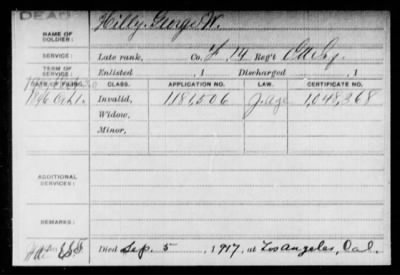 DEAD
NAME OF SOLDIER: Hilly, George W.
SERVICE: Late rank, Co. F, 14 Reg't
TERM OF SERVICE: Enlisted , 1 Discharged , 1
DATE OF FILING. CLASS. APPLICATION NO. LAW. CERTIFICATE NO.
1896 Oct. 1. Invalid, 1181506 J. age 1,048,368
Widow,
Minor,
ADDITIONAL SERVICES:
REMARKS:
Died Sep. 5, 1917, at Los Angeles, Cal.